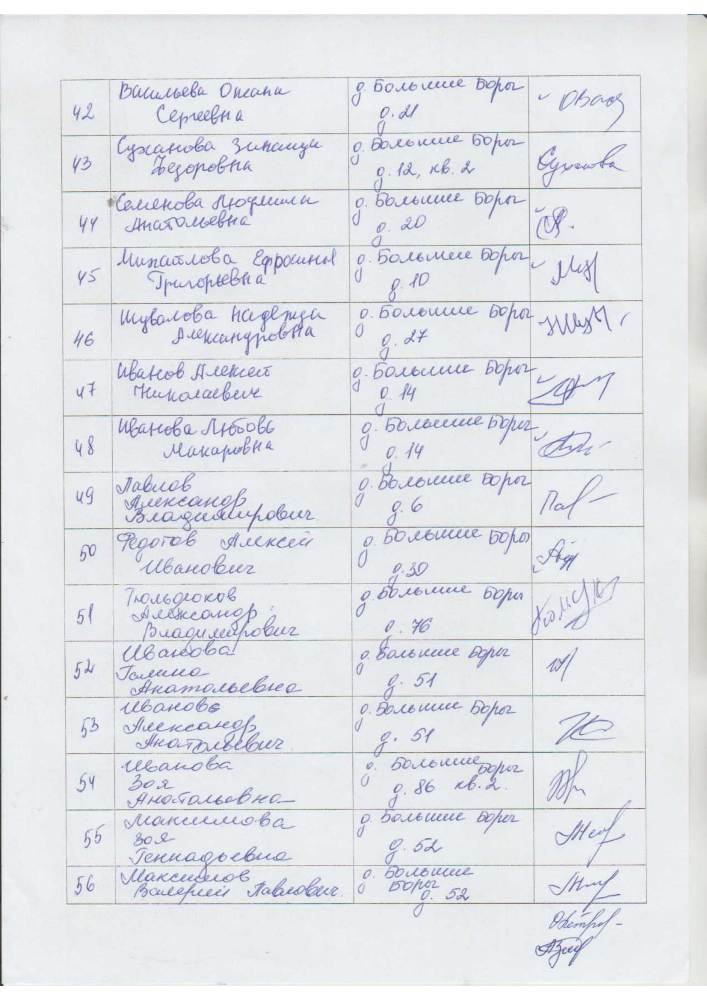 42 Васильева Оксана д. Большие Боры
Сергеевна д. 21
43 Суханова Зинаида д. Большие Боры
Федоровна д. 12, кв. 2
44 Семенова Людмила д. Большие Боры
Анатольевна д. 20
45 Михайлова Ефросинья д. Большие Боры
Григорьевна д. 10
46 Шувалова Надежда д. Большие Боры
Александровна д. 27
47 Иванов Алексей д. Большие Боры
Николаевич д. 14
48 Иванова Любовь д. Большие Боры
Макаровна д. 14
49 Павлов д. Большие Боры
Александр д. 6 Пав
Владимирович
50 Федотов Алексей д. Большие Боры
Иванович д. 30
51 д. Большие Боры
Александр
Владимирович д. 76
52 Иванова д. Большие Боры
Галина
Анатольевна д. 51
53 Иванов д. Большие Боры
Александр
Анатольевич д. 51
54 Иванова д. Большие
Зоя Боры
Анатольевна д. 86 кв. 2.
55 Максимова д. Большие Боры
Зоя
Геннадьевна д. 52
56 Максимов д. Большие
Валерий Павлович. Боры
д. 52